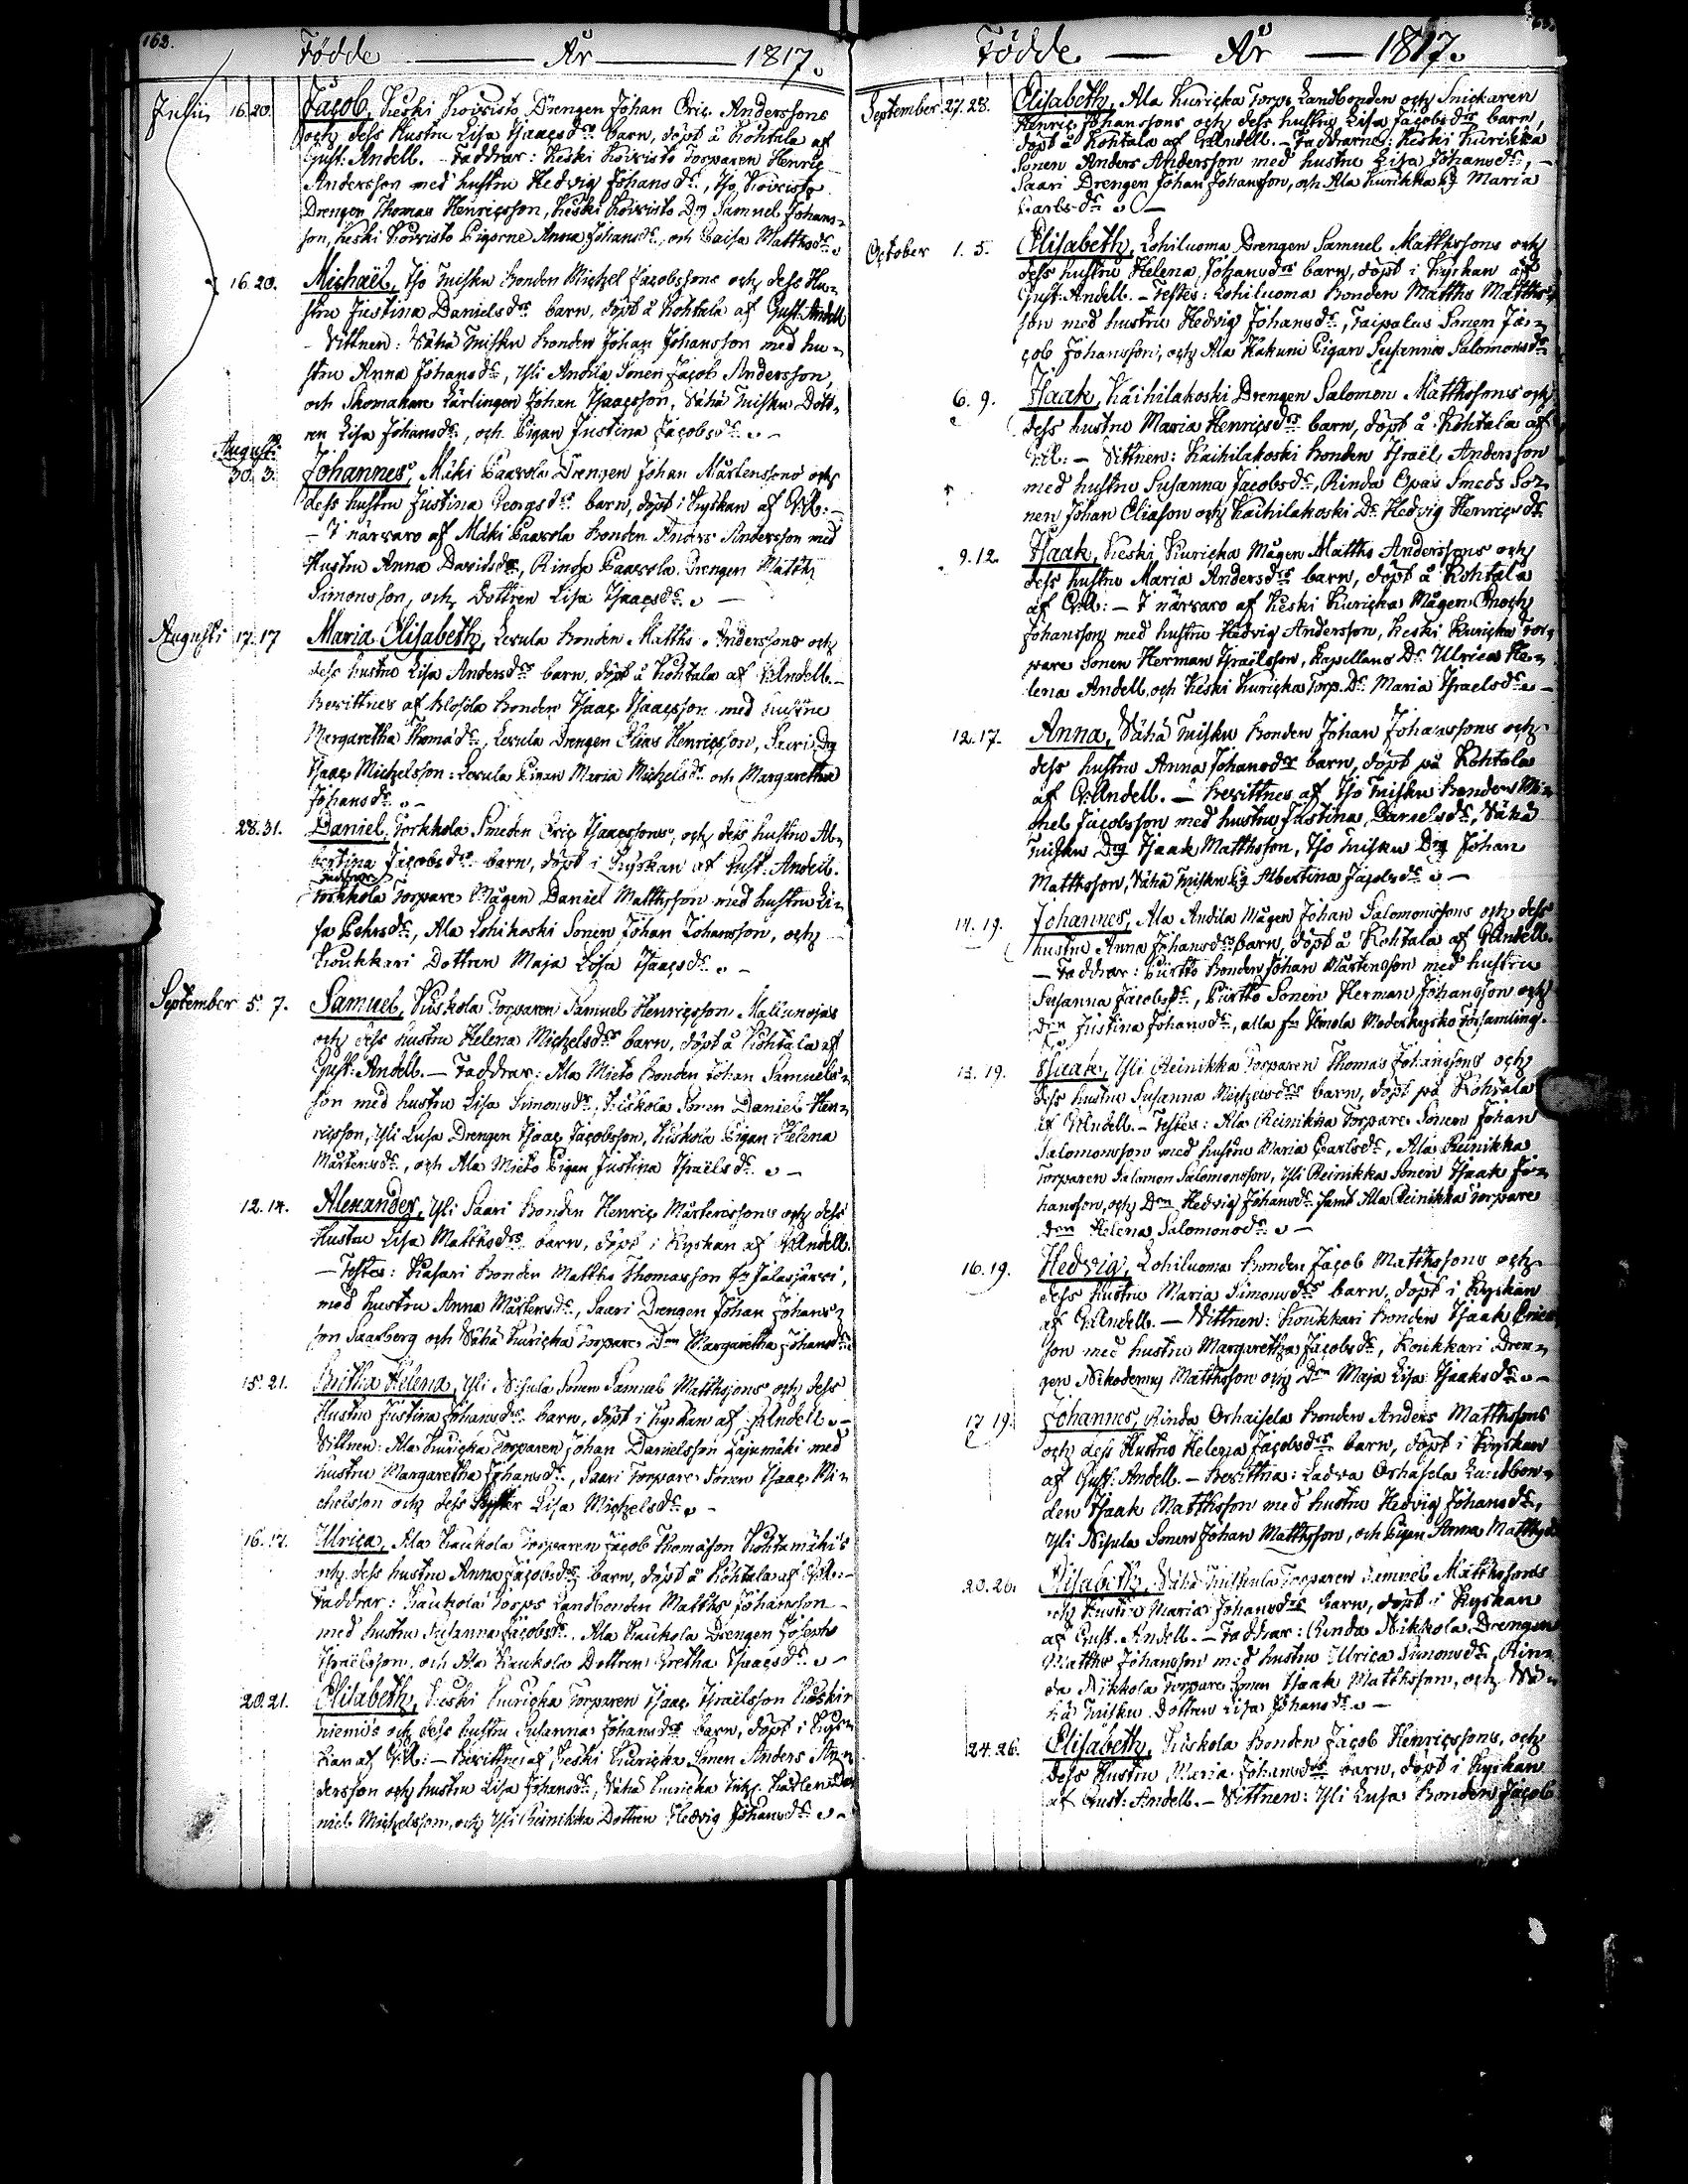 162.
Födde — År — 1817.
Julii 16. 20. Jacob, Keski Koivisto Drengen Johan Eric Anderssons
och dess Hustru Lisa Isaacsdr barn, döpt å Kohtala af
Gust: Andell. - Faddrar: Keski Koivisto Torparen Henric
Andersson med hustru Hedvig Johansdr, Iso Koivisto
Drengen Thomas Henricsson, Keski Koivisto Drg Samuel Johans-
son, Keski Koivisto Pigorne Anna Johansdr, och Caisa Matthsdr.
16. 20. Michaël, Iso Misku Bonden Michel Jacobssons och dess Hu-
stru Justina Danielsdrs barn, döpt å Kohtala af Gust: Andell
- Vittnen: Vähä Misku Bonden Johan Johansson med hu-
stru Anna Johansdr, Yli Andila Sonen Jacob Andersson,
och Skomakare Lärlingen Johan Isaacsson, Vähä Misku Dott-
ren Lisa Johansdr, och Pigan Justina Jacobsdr. -
Augusti
30. 3. Johannes, Mäki Paavola Drengen Johan Mårtenssons och
dess hustru Justina Georgsdrs barn, döpt i Kyrkan af G:A: -
- I närvaro af Mäki Paavola Bonden Anders Andersson med
Hustru Anna Davidsdr, Rinda Paavola Drengen Matth
Simonsson, och Dottren Lisa Isaacsdr. -
Augusti 17. 17 Maria Elisabeth, Levula Bonden Matths Anderssons och
dess hustru Lisa Andersdrs barn, döpt å Kohtala af G:Andell. -
Bevittnes af Bonden Isaac Isaacsson med hustru
Margaretha Thomædr, Levula Drengen Elias Henricsson, Saari Drg
Isaac Michelsson: Levula Pigan Maria Michelsdr och Margaretha
Johansdr. -
28. 31. Daniel, Torkkola Smeden Eric Isaacssons, och dess hustru Al-
bertina Jacobsdrs barn, döpt i Kyrkan af Gust: Andell.
Torkkola Torpare Mågen Daniel Matthsson med hustru Li-
sa Pehrsdr, Ala Lohikoski Sonen Johan Johansson, och
Koukkari Dottren Maja Lisa Isaacsdr. -
September 5. 7. Samuel, Kuskola Torparen Samuel Henricsson Mallunojas
och dess hustru Helena Michelsdrs barn, döpt å Kohtala af
Gust: Andell. - Faddrar: Ala Mieto Bonden Johan Samuels-
son med hustru Lisa Simonsdr, Kuskola Sonen Daniel Hen-
ricsson, Yli Lusa Drengen Isaac Jacobsson, Kuskola Pigan Helena
Mårtensdr, och Ala Mieto Pigan Justina Israëlsdr. -
12. 14. Alexander, Yli Saari Bonden Henric Mårtenssons och dess
Hustru Lisa Matthsdrs barn, döpt i Kyrkan af G:Andell.
- Testes: Kasari Bonden Matths Thomasson fr Jalasjärvi,
med hustru Anna Mårtensdr, Saari Drengen Johan Johans-
son Saarberg och Vähä Kuricka Torpare Drn Margaretha Johansdr.
15. 21. Britha Helena, Yli Nisula Sonen Samuel Matthssons och dess
Hustru Justina Johansdrs barn, döpt i Kyrkan af G:Andell. -
Vittnen: Ala Kuricka Torparen Johan Danielsson Lajumäki med
hustru Margaretha Johansdr, Saari Torpare Sonen Isaac Mi-
chelsson och dess Syster Lisa Michelsdr. -
16. 17. Ulrica, Ala Kaukola Torparen Jacob Thomasson Kohtamäki's
och dess hustru Anna Jacobsdrs barn, döpt å Kohtala af G:A: -
Faddrar: Kaukola Torps Landbonden Matths Johansson
med hustru Susanna Jacobsdr. Ala Kaukola Drengen Joseph
Israëlsson, och Ala Kaukola Dottren Gretha Isaacsdr. -
20. 21. Elisabeth, Keski Kuricka Torparen Isaac Israëlsson Koskin
niemis och dess hustru Susanna Johansdrs barn, döpt i Kyr-
kan af G:A: - Bevittnes af Keski Kuricka Sonen Anders An-
dersson och hustru Lisa Johansdr, Vähä Kuricka Karlen Da-
niel Michelsson, och Yli Reinikka Dottren Hedvig Johansdr. -
Födde — År — 1817.
September. 27. 28. Elisabeth, Ala Kuricka Torps Landbonden och Snickaren
Henric Johanssons och dess hustru Lisa Jacobsdrs barn,
döpt å Kohtala af G:Andell. - Faddrarne: Keski Kurickka
Sonen Anders Andersson med hustru Lisa Johansdr, -
Saari Drengen Johan Johansson, och Ala Kurikka Pig Maria
Carlsdr. -
October 1. 5. Elisabeth, Lohiluoma Drengen Samuel Matthssons och
dess hustru Helena Johansdrs barn, döpt i Kyrkan af
Gust: Andell. - Testes: Lohiluoma Bonden Matths Matths-
son med hustru Hedvig Johansdr, Taipalus Sonen Ja-
cob Johansson, och Ala Kakuri Pigan Susanna Salomonsdr
6. 9. Isaak, Kaihilakoski Drengen Salomon Matthssons och
dess hustru Maria Henricsdrs barn, döpt å Kohtala af
G:A: - Vittnen: Kaihilakoski Bonden Israël Andersson
med hustru Susanna Jacobsdr, Rinda Opas Smeds So-
nen Johan Eliason och Kaihilakoski Dr Hedvig Henricsdr
9. 12. Isaak, Keski Kuricka Mågen Matths Anderssons och
dess hustru Maria Andersdrs barn, döpt å Kohtala
af G:A: - I närvaro af Keski Kuricka Mågen Enoch
Johansson med hustru Hedvig Andersson, Keski Kuricka Tor-
pare Sonen Herman Israëlsson, Kapellans Dr Ulrica He-
lena Andell, och Keski Kuricka Torp. Dr Maria Israelsdr. -
12. 17. Anna, Vähä Misku Bonden Johan Johanssons och
dess hustru Anna Johansdrs barn, döpt på Kohtala
af G:Andell. - Bevittnes af Iso Misku Bonden Mi-
chel Jacobsson med hustru Justina Danielsdr, Vähä
Misku Drg Isaak Matthsson, Iso Misku Drg Johan
Matthsson, Vähä Misku Pig Albertina Jacobsdr. -
14. 19. Johannes, Ala Andila Mågen Johan Salomonssons och dess
hustru Anna Johansdrs barn, döpt å Kohtala af G:Andell.
- Faddrar: Purtto Bonden Johan Mårtensson med hustru
Susanna Jacobsdr, Purtto Sonen Herman Johansson och
Drn Justina Johansdr, alla fr Ilmola Moderkyrko Församling.
13. 19. Isaak, Yli Reinikka Torparen Thomas Johanssons och
dess hustru Susanna Michelsdrs barn, döpt på Kohtala
af G:Andell. - Testes: Ala Reinikka Torpare Sonen Johan
Salomonsson med hustru Maria Carlsdr, Ala Reinikka
Torparen Salomon Salomonsson, Yli Reinikka Sonen Isaak Jo-
hansson, och Drn Hedvig Johansdr samt Ala Reinikka Torpare
Drn Helena Salomonsdr. -
16. 19. Hedvig, Lohiluoma Bonden Jacob Matthssons och
dess Hustru Maria Simonsdrs barn, döpt i Kyrkan
af G:Andell. - Vittnen: Koukkari Bonden Isaak Erics
son med hustru Margaretha Jacobsdr, Koukkari Dren-
gen Nikodemus Matthsson och Drn Maja Lisa Isaaksdr. -
17 19. Johannes, Rinda Orhaisela Bonden Anders Matthssons
och dess Hustru Helena Jacobsdrs barn, döpt i Kyrkan
af Gust: Andell. - Bevittna: Ladva Orhasela Landbon-
den Isaak Matthsson med hustru Hedvig Johansdr,
Yli Nisula Sonen Johan Matthsson, och Pigan Anna Matthsdr
20. 26. Elisabeth, Vähä Torparen Samuel Matthssons
och hustru Maria Johansdrs barn, döpt i Kyrkan
af Gust. Andell. - Faddrar: Rinda Nikkola Drengen
Matths Johansson med hustru Ulrica Simonsdr, Rin-
da Nikkola Torpare Sonen Isaak Matthsson, och Vä-
hä Misku Dottren Lisa Johansdr. -
24. 26. Elisabeth, Kuskola Bonden Jacob Henricssons, och
dess Hustru Maria Johansdrs barn, döpt i Kyrkan
af Gust: Andell. - Vittnen: Yli Lusa Bonden Jacob